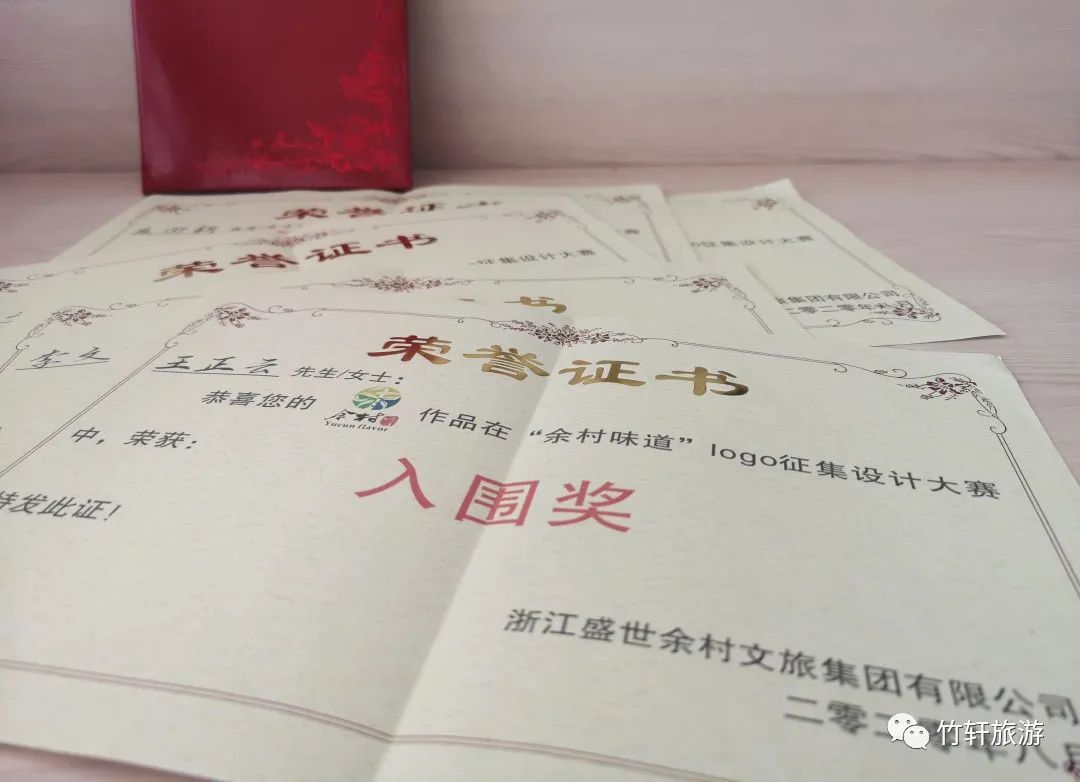 荣誉证书
荣誉证书
征集设计大赛
征集设计大赛
集团有限公司
二零二零年八月
书
荣誉证书
王正云 先生/女士：
恭喜您的 余村 Yucun flavor 作品在“余村味道”logo征集设计大赛
中，荣获：
入围奖
特发此证！
浙江盛世余村文旅集团有限公司
二零二零年八月
竹轩旅游